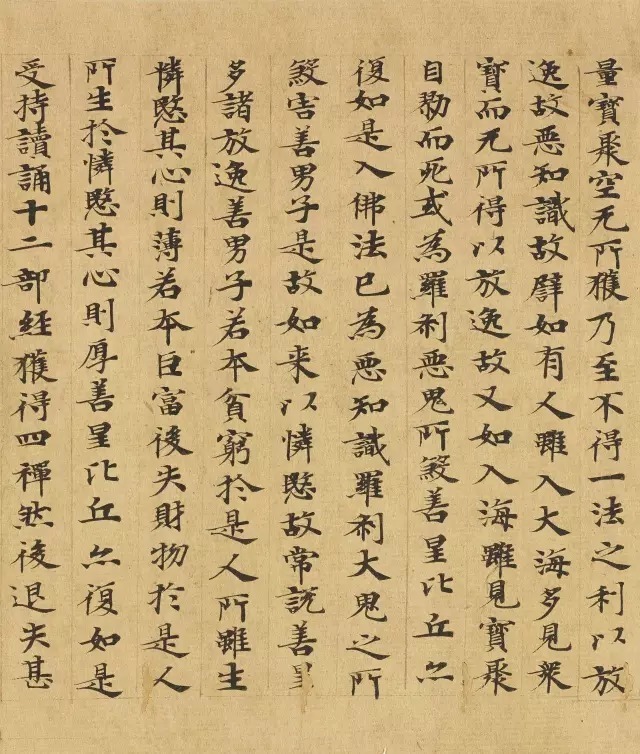 量寶聚空无所獲乃至不得一法之利以放
逸故惡知識故譬如有人雖入大海多見衆
寶而无所得以放逸故又如入海雖見寶聚
自勠而死或為羅刹惡鬼所殺善星比丘亦
復如是入佛法已為惡知識羅刹大鬼之所
殺害善男子是故如来以憐愍故常説善星
多諸放逸善男子若本貧窮於是人所雖生
憐愍其心則薄若本巨富後失財物於是人
所生於憐愍其心則厚善星比丘亦復如是
受持讀誦十二部經獲得四禪然後退失甚